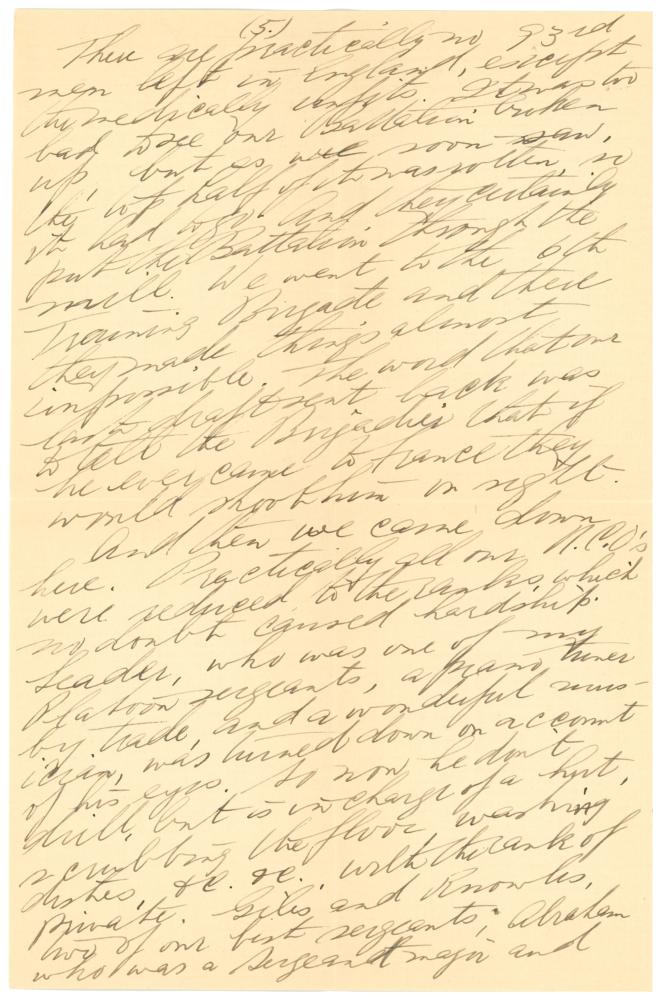 (5.)
There are practically no 93rd
men left in England, except
the medically unfits. It was too
bad to see our Battalion broken
up, but as we soon saw,
the top half of it was rotten, so
it had to go. And they certainly
put the Battalion through the
mill. We went to the 6th
Training Brigade and there
they made things almost
impossible. The word that our
last draft sent back was
to tell the Brigadier that if
he ever came to France they
would shoot him on sight.
And then we came down
here. Practically all our N.C.O's
were reduced to the ranks, which
no doubt caused hardship.
Leader, who was one of my
Platoon sergeants, a piano tuner
by trade, and a wonderful mus-
ician, was turned down on account
of his eyes. So now he don't
drill, but is in charge of a hut,
scrubbing the floor, washing
dishes, &c. &c. with the rank of
private. Giles and Knowles,
two of our best sergeants; Abraham
who was a sergeant major and